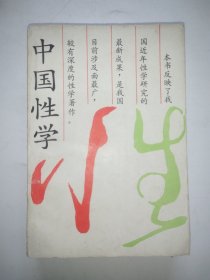 本书反映了我
国近年性学研究的
最新成果，是我国
目前涉及面最广，
较有深度的性学著作。
中国性学
性